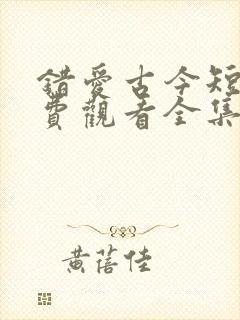 錯愛古今短
費觀看全集
黃蓓佳